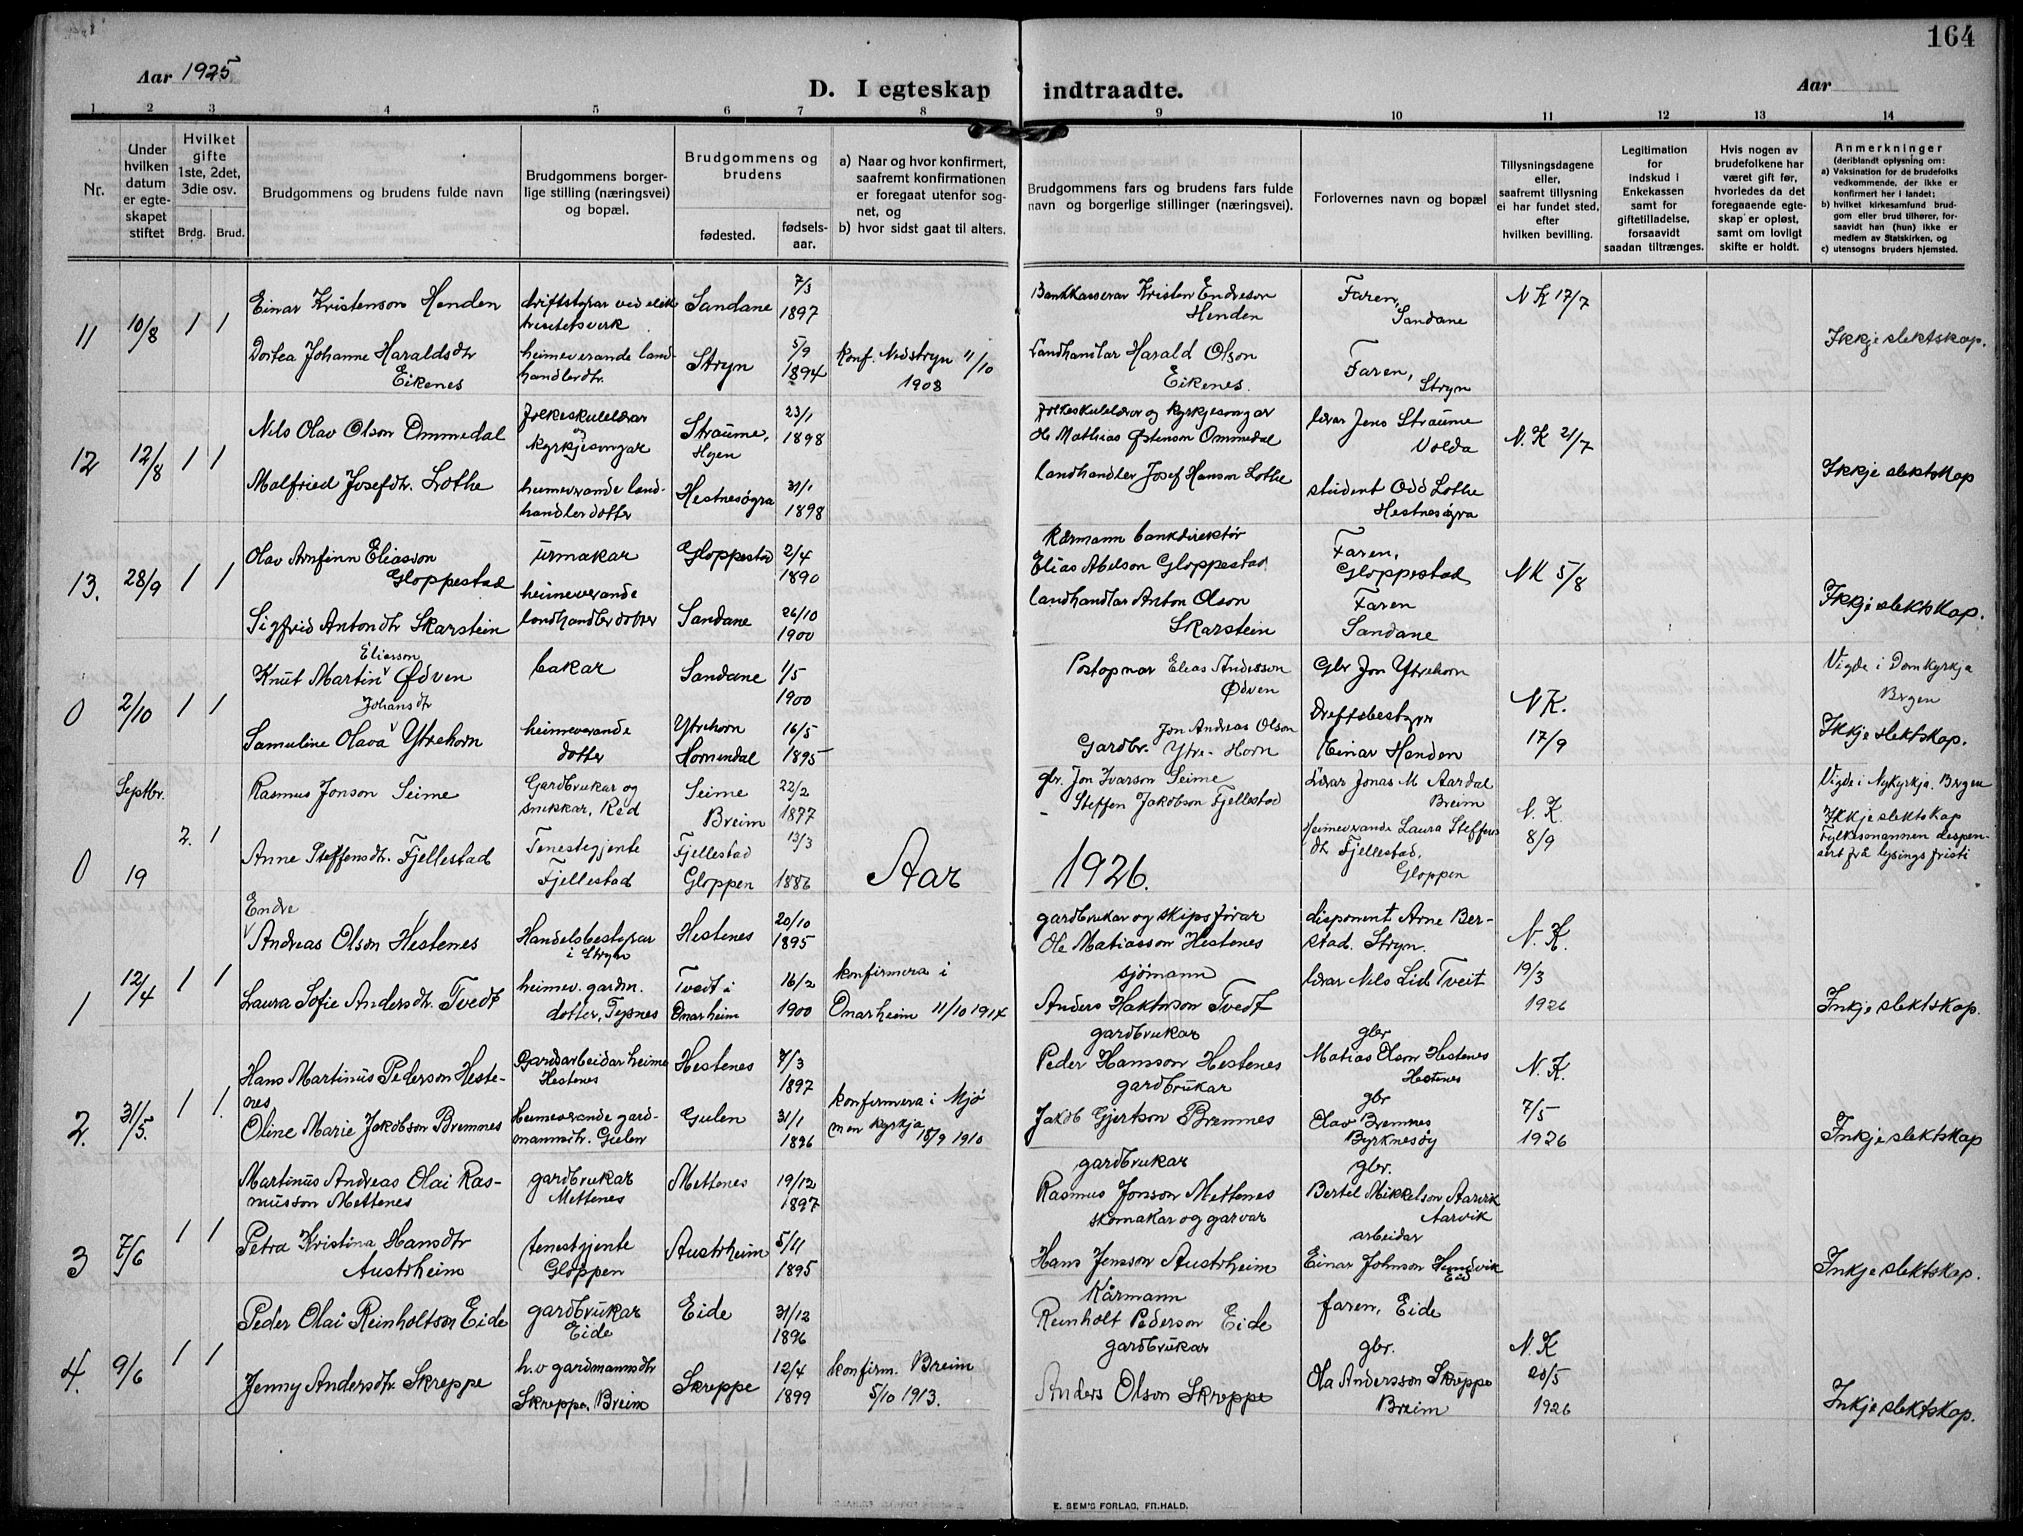 164
Aar 1925
D. I egteskap indtraadte.
Aar
1 2 3 4 5 6 7 8 9 10 11 12 13 14
Nr.
Under hvilken datum er egteskapet stiftet
Hvilket gifte 1ste, 2det, 3die osv.
Brdg. Brud.
Brudgommens og brudens fulde navn
Brudgommens borgerlige stilling (næringsvei) og bopæl.
Brudgommens og brudens
fødested.
fødselsaar.
a) Naar og hvor konfirmert, saafremt konfirmationen er foregaat utenfor sognet, og
b) hvor sidst gaat til alters.
Brudgommens fars og brudens fars fulde navn og borgerlige stillinger (næringsvei).
Forlovernes navn og bopæl
Tillysningsdagene eller, saafremt tillysning ei har fundet sted, efter hvilken bevilling.
Legitimation for indskud i Enkekassen samt for giftetilladelse, forsaavidt saadan tiltrænges.
Hvis nogen av brudefolkene har været gift før, hvorledes da det foregaaende egteskap er opløst, samt om lovligt skifte er holdt.
Anmerkninger
(deriblandt oplysning om:
a) Vaksination for de brudefolks vedkommende, der ikke er konfirmert her i landet;
b) hvilket kirkesamfund brudgom eller brud tilhører, forsaavidt han (hun) ikke er medlem av Statskirken, og
c) utensogns bruders hjemsted.
11 10/8 1 1
Einar Kristenson Henden
driftstyrar ved elektrisitetsverk
Sandane
7/3 1897
Bankkasserar Kristen Endreson Henden
Faren, Sandane
N K 17/7
Dortea Johanne Haraldsdtr Eikenes
heimeverande landhandlerdtr.
Stryn
5/9 1894
konf. Nedstryn 11/10 1908
Landhandlar Harald Olson Eikenes.
Faren, Stryn
Ikkje slektskap.
12 12/8 1 1
Nils Olav Olson Ommedal
folkeskulelærar og kyrkjesongar
Straume, Hyen
23/1 1898
folkeskulelærar og kyrkjesongar
Ole Mathias Østenson Ommedal
lærar Jens Straume Volda
N. K 21/7
Malfried Josefdtr. Lothe
heimeverande landhandlerdotter
Hestnesøyra
31/1 1898
landhandler Josef Hanson Lothe
student Odd Lothe Hestnesøyra
Ikkje slektskap
13. 28/9 1 1
Olav Arnfinn Eliasson Gloppestad
urmakar
Gloppestad
2/4 1890
Kårmann bankdirektør
Elias Abelson Gloppestad
Faren, Gloppestad
N K 5/8
Sigfrid Antondtr Skarstein
heimeverande landhandlerdotter
Sandane
26/10 1900
landhandlar Anton Olson Skarstein
Faren Sandane
Ikkje slektskap.
0 2/10 1 1
Eliasson
Knut Martin Ødven
bakar
Sandane
1/5 1900
Postopnar Elias Andersson Ødven
Gbr Jon Ytrehorn
N K. 17/9
Vigde i Domkyrkja Bergen
Johansdtr
Samuline Olava Ytrehorn
heimeverande dotter
Ytrehorn Hornindal
16/5 1895
Jon Andreas Olson
Gardbr. Ytre-Horn
Driftsbestyrer Einar Henden
Ikkje slektskap.
0 Septbr. 19 2. 1
Rasmus Jonson Seime
Gardbrukar og snikkar, Red
Seime Breim
22/2 1877
gbr. Jon Ivarson Seime
Lærar Jonas M Aardal Breim
N. K. 8/9
Vigde i Nykyrkja. Bergen
Anne Steffensdtr. Fjellestad
Tenestegjente Fjellestad
Fjellestad Gloppen
13/3 1886
- Steffen Jakobson Fjellestad
Heimeverande Laura Steffensdtr Fjellestad, Gloppen
Ikkje slektskap
Fylkesmannen despensert frå lysingsfristi
Aar 1926.
1 12/4 1 1
Endre
Andreas Olson Hestenes
Handelsbestyrar i Stryn
Hestenes
20/10 1895
gardbrukar og skipsførar
Ole Matiasson Hestenes
disponent Arne Berstad. Stryn.
N. K. 19/3 1926
Laura Sofie Andersdtr. Tvedt
heimev. gardm. dotter, Tysnes
Tvedt i Onarheim
16/2 1900
konfirmera i Onarheim 11/10 1914
sjømann
Anders Haktorson Tvedt
lærar Nils Lid Tveit
Inkje slektskap.
2. 31/5. 1 1.
Hans Martinus Pederson Hestenes
Gardsarbeidar heime Hestenes
Hestenes
7/3 1897
gardbrukar
Peder Hansson Hestenes
gbr
Matias Olson Hestenes Hestenes
N. K. 7/5 1926
Oline Marie Jakobson Bremnes
Heimeverande gardmannsdtr. Gulen
Gulen
31/1 1896
konfirmera i Mjømen kyrkja 18/9 1910
gardbrukar
Jakob Gjertson Bremnes
gbr
Olav Bremnes Byrknesøy
Inkje slektskap
3 7/6 1 1
Martinus Andreas Olai Rasmusson Mettenes
gardbrukar Mettenes
Mettenes
19/12 1897
gardbrukar
Rasmus Jonson Mettenes
gbr.
Bertel Mikkelson Aarvik Aarvik
Petra Kristina Hansdtr Austrheim
tenestgjente Gloppen
Austrheim
5/11 1895
skomakar og garvar
Hans Jensson Austrheim
arbeidar
Einar Johnson Eid
Inkje slektskap.
4. 9/6 1 1
Peder Olai Reinholtson Eide
gardbrukar Eide
Eide
31/12 1896
Kårmann
Reinholt Pederson Eide
faren, Eide
N. K 20/5 1926
Jenny Andersdtr Skreppe
h.v gardmannsdtr Skreppe, Breim
Skreppe
12/4 1899
konfirm. Breim 5/10 1913.
gardbrukar
Anders Olson Skreppe
gbr.
Ola Andersson Skreppe Breim
Inkje slektskap.
E. SEM'S FORLAG, FR.HALD.